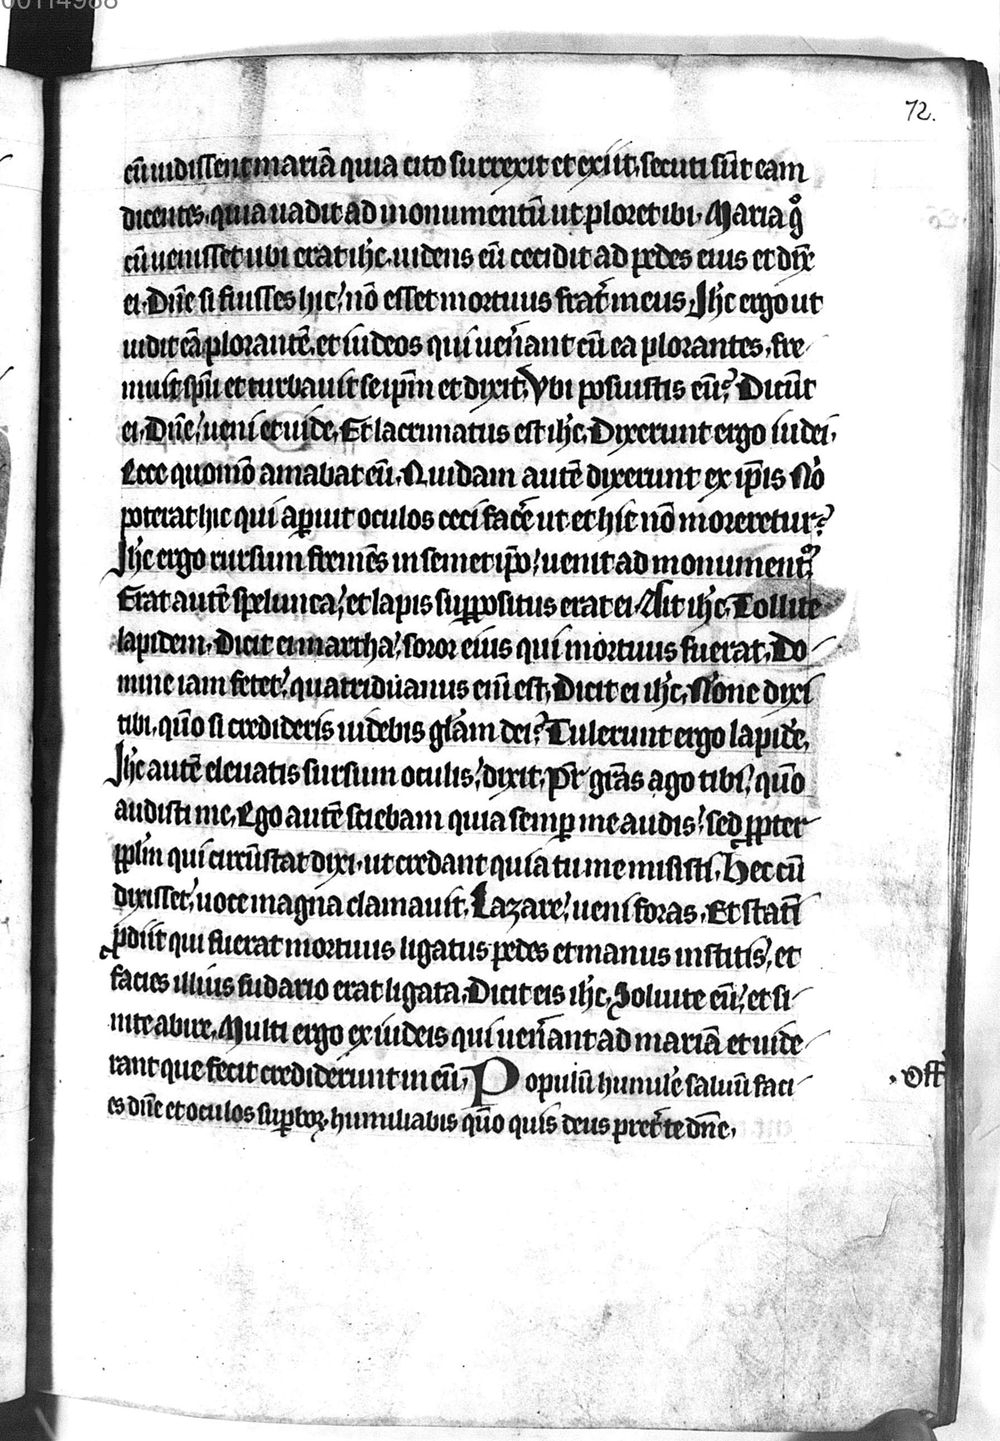 00114988
72.
cū uidissent mariā quia cito surrexit et exiit, secuti sūt eam
dicentes, quia uadit ad monumentū ut ploret ibi. Maria gͦ
cū uenisset ubi erat ihc, uidens eū cecidit ad pedes eius et dix̄
ei. Dn̄e si fuisses hic, nō esset mortuus frat̄ meus. Ihc ergo ut
uidit eā plorantē, et iudeos qui uen̄ant cū ea plorantes, fre-
muit sp̄u et turbauit seip̄m et dixit, Vbi posuistis eū? Dicūt
ei, Dn̄e, ueni et uide, Et lacrimatus est ihc, Dixerunt ergo iudei,
Ecce quomō amabat eū, Quidam autē dixerunt ex ip̄is Nō
poterat hic qui aperuit oculos ceci facē ut et hic nō moreretur?
Ihc ergo rursum fremēs in semet ip̄o, uenit ad monumentꝫ
Erat autē spelunca, et lapis suꝑpositus erat ei. Ait ihc, Tollite
lapidem, Dicit ei martha, soror eius qui mortuus fuerat, Do-
mine iam fetet, quatriduanus em̄ est, Dicit ei ihc, Nōne dixi
tibi, qm̄o si credideris uidebis glām dei? Tulerunt ergo lapidē,
Ihc autē eleuatis sursum oculis, dixit, Pr̄ gr̄as ago tibi, qūo
audisti me, Ego autē sciebam quia semꝑ me audis, sed ꝓpter
pp̄lm qui circūstat dixi, ut credant quia tu me misisti, Hec cū
dixisset, uoce magna clamauit, Lazare, ueni foras, Et statī
ꝓdiit qui fuerat mortuus ligatus pedes et manus institis, et
facies illius sudario erat ligata, Dicit eis ihc, Soluite eū, et si-
nite abire, Multi ergo ex iudeis qui uen̄ant ad mariā et uide-
rant que fecit crediderunt in eū, Populū humilē saluū faci-
.Off
es dn̄e et oculos suꝑboꝝ humiliabis qūo quis deus pret̄ te dn̄e,